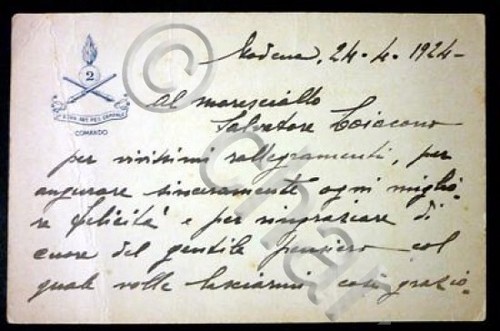 Modena, 24-4-1924-
2
COMANDO
Al maresciallo
Salvatore Loiacono
per vivissimi rallegramenti, per
augurare sinceramente ogni miglio-
re felicità e per ringraziare di
cuore del gentile pensiero col
quale volle lasciarmi così grazio-